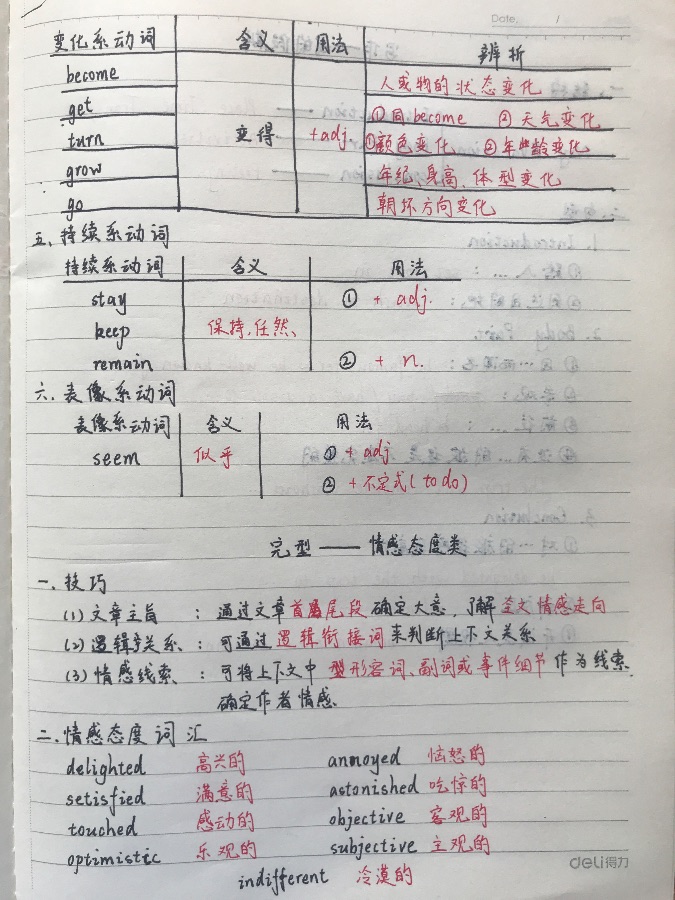 Date. /
变化系动词 含义 用法 辨析
become 人或物的状态变化
get ①同become ②天气变化
turn 变得 +adj ①颜色变化 ②年龄变化
grow 年纪、身高、体型变化
go 朝坏方向变化
五、持续系动词
持续系动词 含义 用法
stay ① + adj.
keep 保持,任然、
remain ② + n.
六、表像系动词
表像系动词 含义 用法
seem 似乎 ① + adj
② +不定式(to do)
完型——情感态度类
一、技巧
(1)文章主旨 : 通过文章首尾段确定大意,了解全文情感走向
(2)逻辑关系 : 可通过逻辑衔接词来判断上下文关系
(3)情感线索、 : 可将上下文中型形容词、副词或事件细节作为线索、
确定作者情感、
二、情感态度词汇
delighted 高兴的 annoyed 恼怒的
setisfied 满意的 astonished 吃惊的
touched 感动的 objective 客观的
optimistic 乐观的 subjective 主观的
indifferent 冷漠的
deli得力